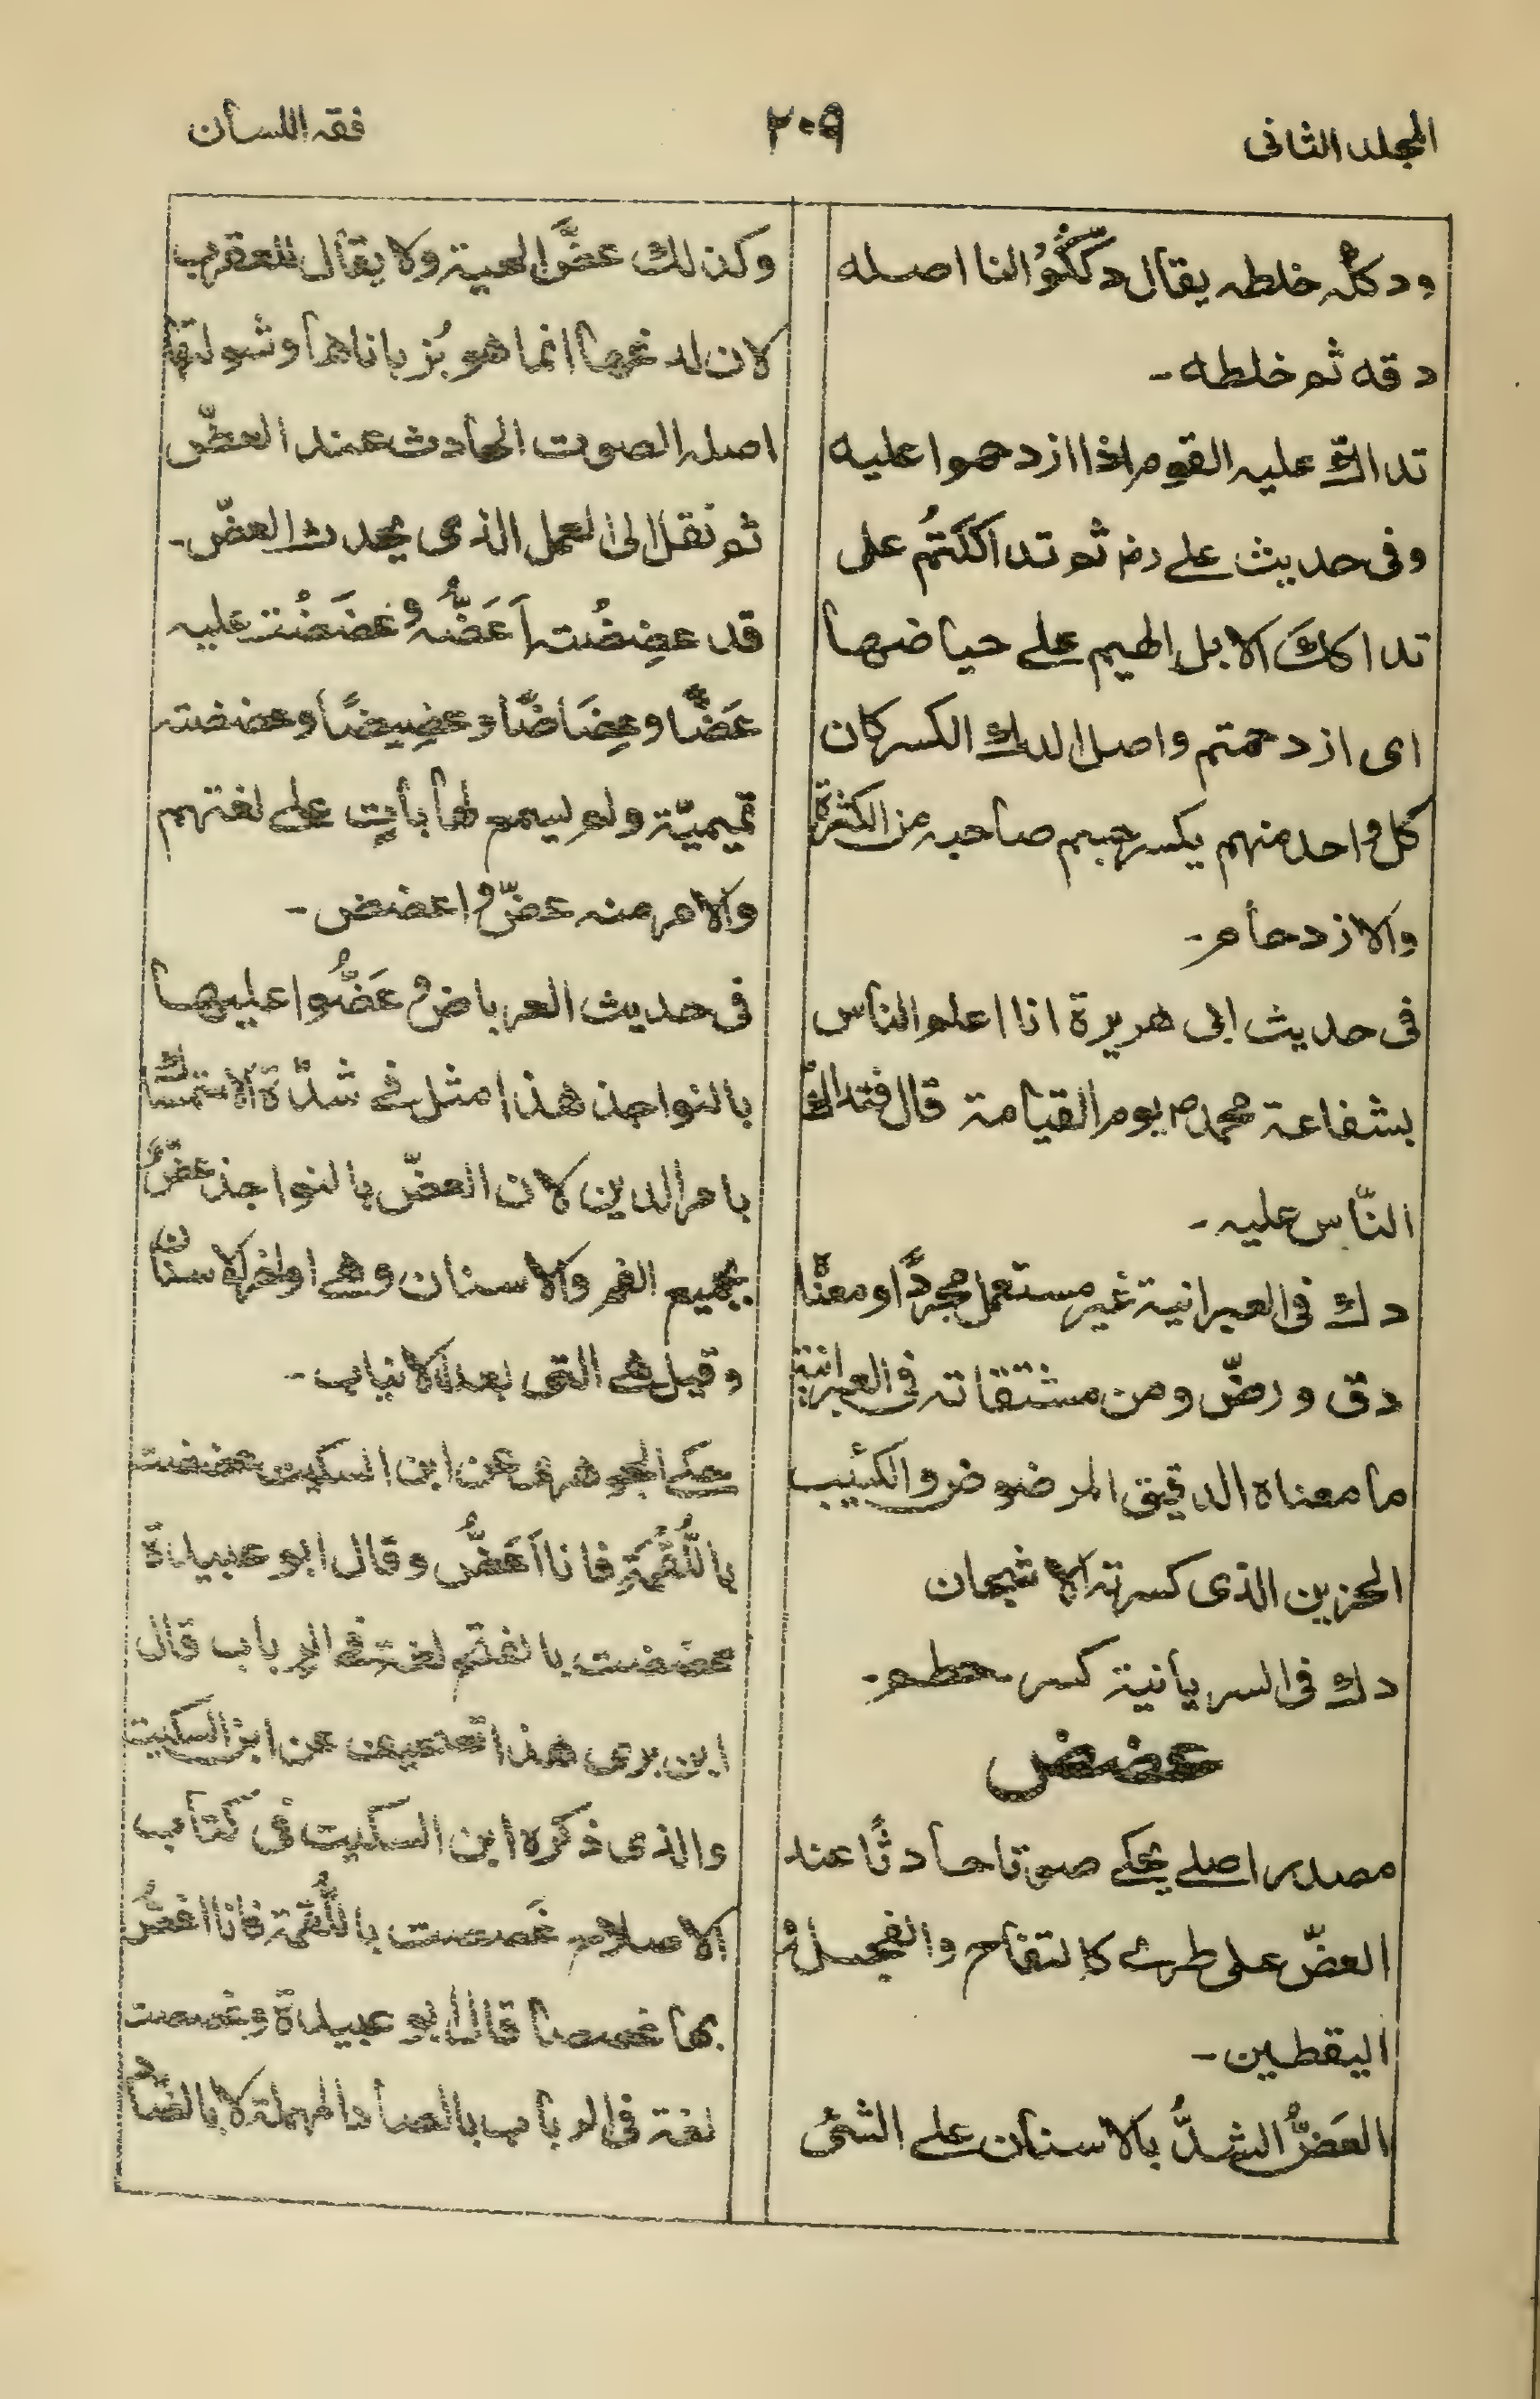 المجلد الثانی
۲۰۹
فقہ اللسان
ودکّہ خلطہ یقال دکّکوُا لنا اصلہ
دقہ ثم خلطہ ۔
تداكّ علیہ القوم اذا ازدحموا علیہ
وفی حدیث علے رض ثم تداککتُم علی
تداكك الابل الهیم علے حیاضها
ای ازدحمتم واصل الدك الکسر کان
کل واحد منهم یکسر جسم صاحبہ من الکثرة
والازدحام ۔
فی حدیث ابی هریرة انا اعلم الناس
بشفاعة محمد ص یوم القیامة قال فتداكّ
النّاس علیہ ۔
دك فی العبرانیة غیر مستعمل مجردًا ومعناه
دق ورضّ ومن مشتقاتہ فی العبرانیة
ما معناه الدقیق المرضوض والکئیب
الحزین الذی کسرتہ الاشجان
دك فی السریانیة کسر حطم ۔
عضض
مصدر اصلے یحکے صوتا حادثًا عند
العضّ علی طرئے کالتفاح والفجل او
الیقطین ۔
العَضُّ الشدُّ بالاسنان علے الشئ
وکذلك عضُّ الحیة ولا یقال للعقرب
لان لدغها انما هو بُزباناها وشولتها
اصلہ الصوت الحادث عند العضّ
ثم نقل الی العمل الذی یحدث العضّ ۔
قد عضِضْتہ اَعَضُّہ وعَضَضْت علیہ
عَضًّا وعِضَاضًا وعضِیضًا وعضضتہ
تمیمیّة ولم یسمع لها بآتٍ علے لغتهم
والامر منہ عضّ واعضض ۔
فی حدیث العرباض وعَضُّوا علیها
بالنواجذ هذا مثل فے شدّة الاستمساك
بامر الدین لان العضّ بالنواجذ عضّ
بجمیع الفم والاسنان وهے اواخر الاسنان
وقیل هے التی بعد الانیاب ۔
حکے الجوهری عن ابن السکیت عضضت
باللُّقْمَةِ فانا اَعَضُّ وقال ابو عبیدة
عضضت بالفتح لغة فے الرباب قال
ابن بری هذا تصحیف عن ابن السکیت
والذی ذکره ابن السکیت فی کتاب
الاصلاح غَصصت باللُّقمة فانا اغصُّ
بها غصصا قال ابو عبیدة وغصصت
لغة فی الرباب بالصاد المهملة لا بالضاد